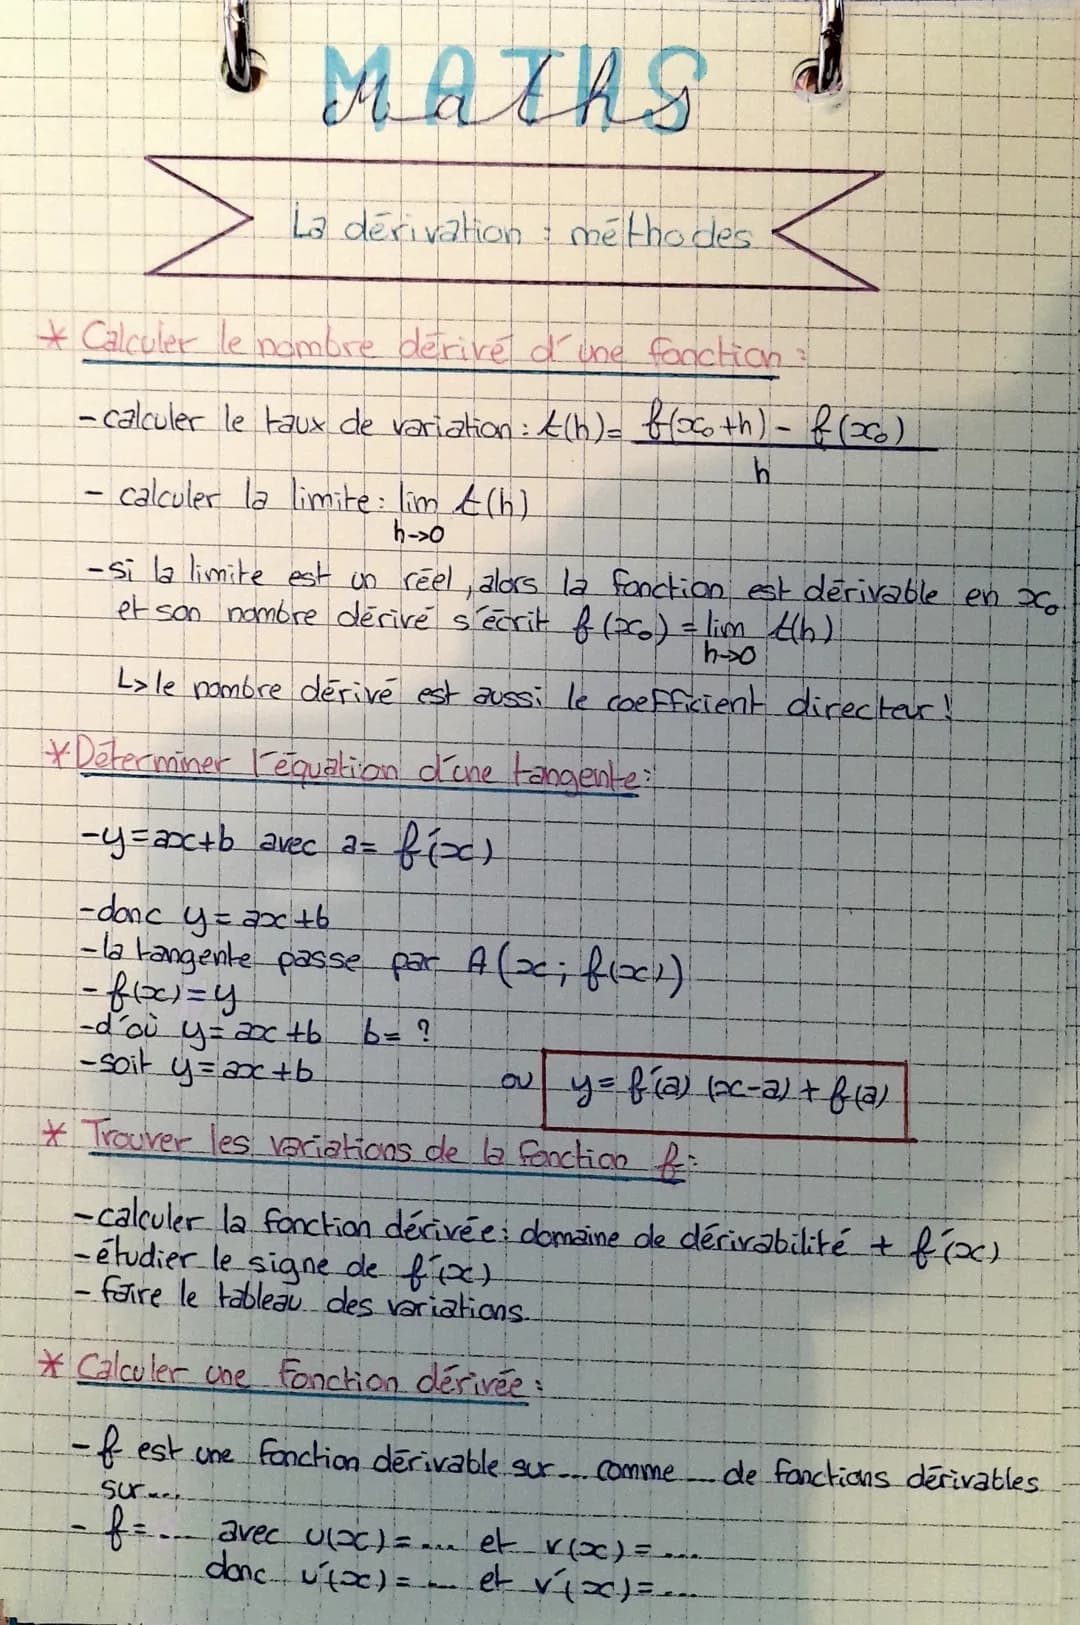 MATHS
Maths
La dérivation : méthodes
* Calculer le nombre dérivé d'une fonction :
- calculer le taux de variation : t(h) = f(x₀+h) - f(x₀)
h
- calculer la limite : lim t(h)
h->0
- si la limite est un réel, alors la fonction est dérivable en x₀
et son nombre dérivé s'écrit f(x₀) = lim t(h)
h->0
L> le nombre dérivé est aussi le coefficient directeur !
* Déterminer l'équation d'une tangente :
- y = ax+b avec a = f'(x)
- donc y = ax+b
- la tangente passe par A(x ; f(x))
- f(x) = y
- d'où y = ax+b b = ?
- soit y = ax+b ou y = f'(a) (x-a) + f(a)
* Trouver les variations de la fonction f :
- calculer la fonction dérivée : domaine de dérivabilité + f'(x)
- étudier le signe de f'(x)
- faire le tableau des variations.
* Calculer une fonction dérivée :
- f est une fonction dérivable sur ... comme ... de fonctions dérivables
sur ...
- f = ... avec u(x) = ... et v(x) = ...
donc u'(x) = ... et v'(x) = ...